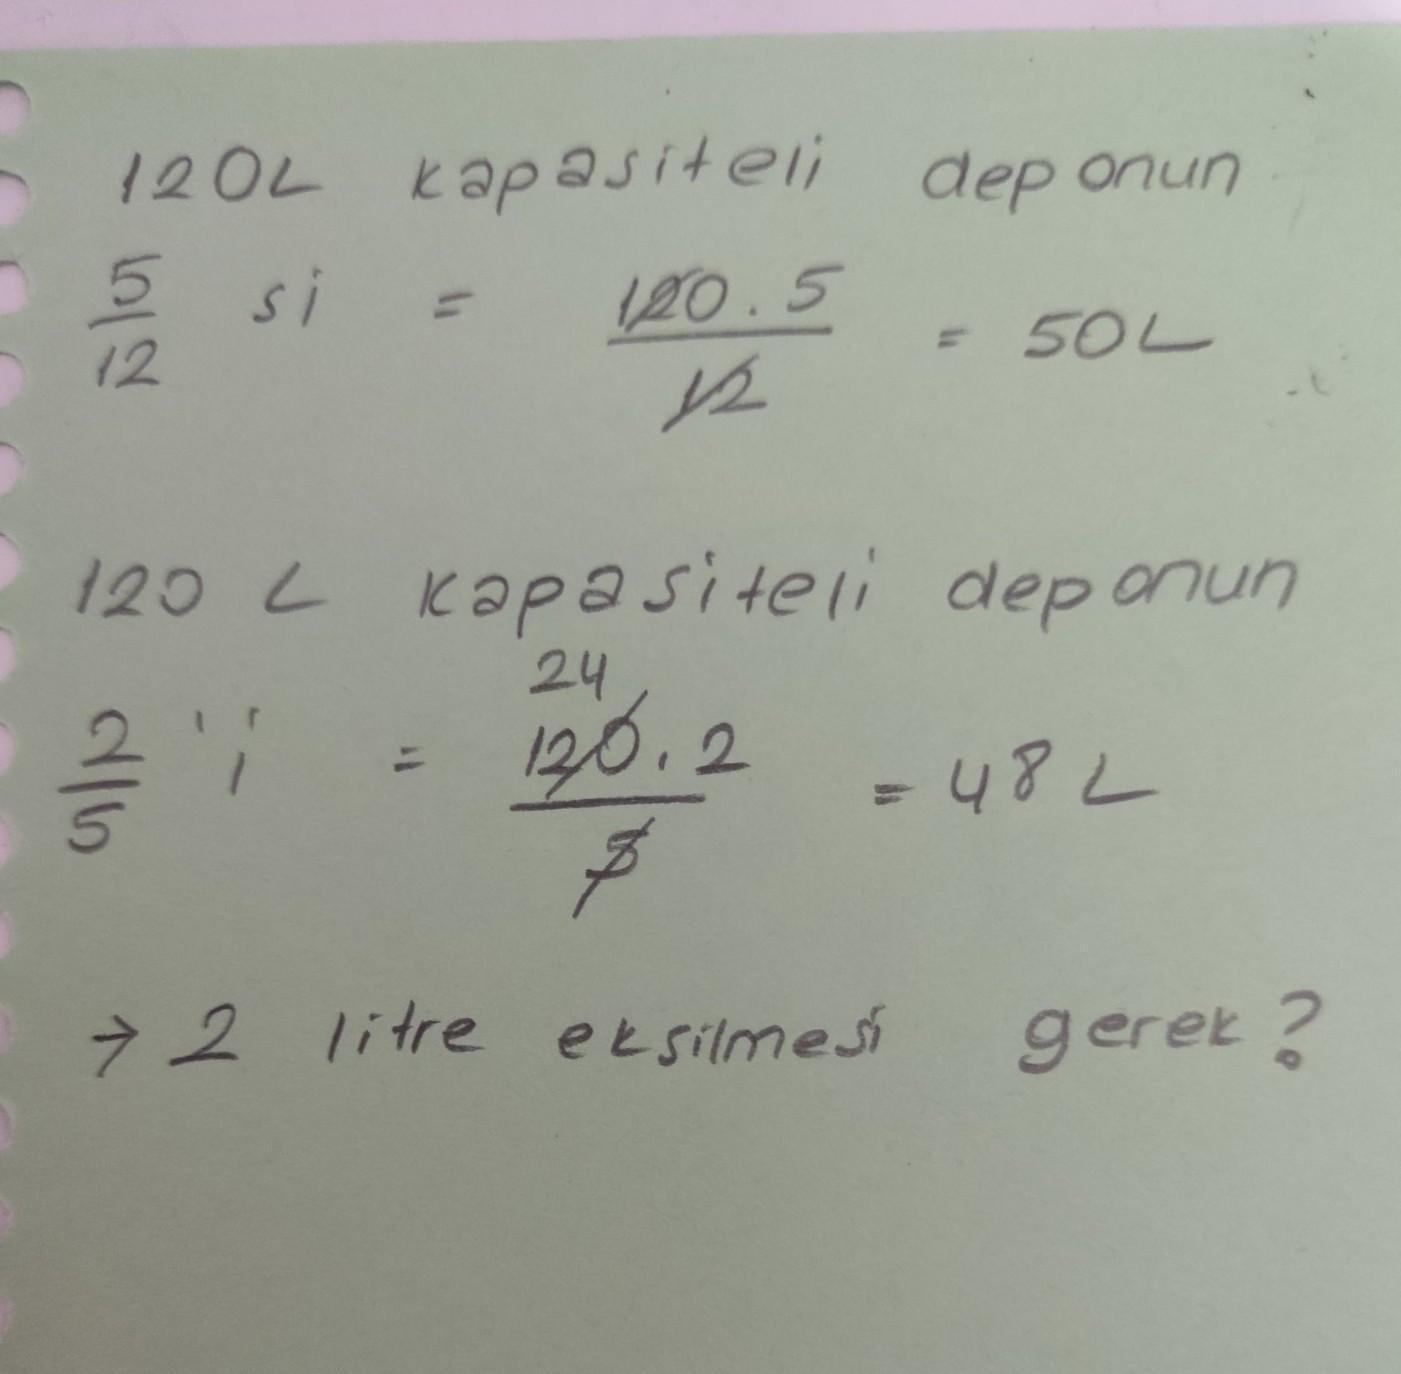 120L kapasiteli deponun
5/12 si = 120.5/12 = 50L
120 L kapasiteli deponun
24
2/5 'i = 120.2/5 = 48 L
→ 2 litre eksilmesi gerek?